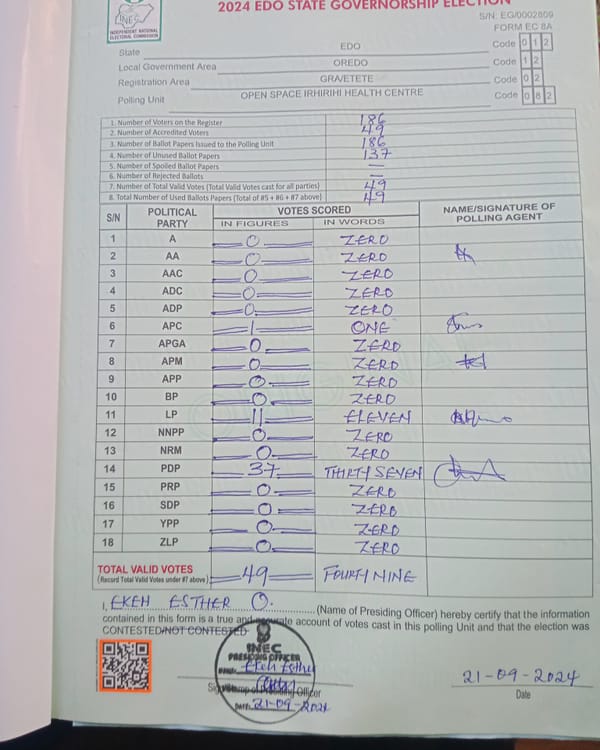 2024 EDO STATE GOVERNORSHIP ELECTION
INEC
INDEPENDENT NATIONAL
ELECTORAL COMMISSION
S/N: EG/0002809
FORM EC 8A
State EDO Code 0 1 2
Local Government Area OREDO Code 1 2
Registration Area GRA/ETETE Code 0 2
Polling Unit OPEN SPACE IRHIRIHI HEALTH CENTRE Code 0 8 2
1. Number of Voters on the Register 186
2. Number of Accredited Voters 49
3. Number of Ballot Papers Issued to the Polling Unit 186
4. Number of Unused Ballot Papers 137
5. Number of Spoiled Ballot Papers —
6. Number of Rejected Ballots —
7. Number of Total Valid Votes (Total Valid Votes cast for all parties) 49
8. Total Number of Used Ballots Papers (Total of #5 + #6 + #7 above) 49
S/N POLITICAL PARTY VOTES SCORED NAME/SIGNATURE OF POLLING AGENT
IN FIGURES IN WORDS
1 A 0 ZERO
2 AA 0 ZERO
3 AAC 0 ZERO
4 ADC 0 ZERO
5 ADP 0 ZERO
6 APC 1 ONE
7 APGA 0 ZERO
8 APM 0 ZERO
9 APP 0 ZERO
10 BP 0 ZERO
11 LP 11 ELEVEN
12 NNPP 0 ZERO
13 NRM 0 ZERO
14 PDP 37 THIRTY SEVEN
15 PRP 0 ZERO
16 SDP 0 ZERO
17 YPP 0 ZERO
18 ZLP 0 ZERO
TOTAL VALID VOTES 49 FOURTY NINE
(Record Total Valid Votes under #7 above)
I, EKEH ESTHER O. (Name of Presiding Officer) hereby certify that the information
contained in this form is a true and accurate account of votes cast in this polling Unit and that the election was
CONTESTED/NOT CONTESTED
INEC
PRESIDING OFFICER
Ekeh Esther
Presiding Officer
DATE: 21-09-2024
21-09-2024
Date